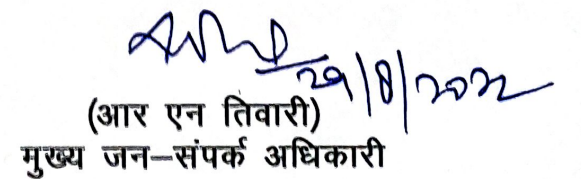 29/8/2022
(आर एन तिवारी)
मुख्य जन–संपर्क अधिकारी